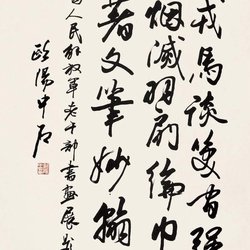 戎馬談笑有強
烟滅羽扇綸巾
著文筆妙翰
人民解放軍老干部書畫展
歐陽中石